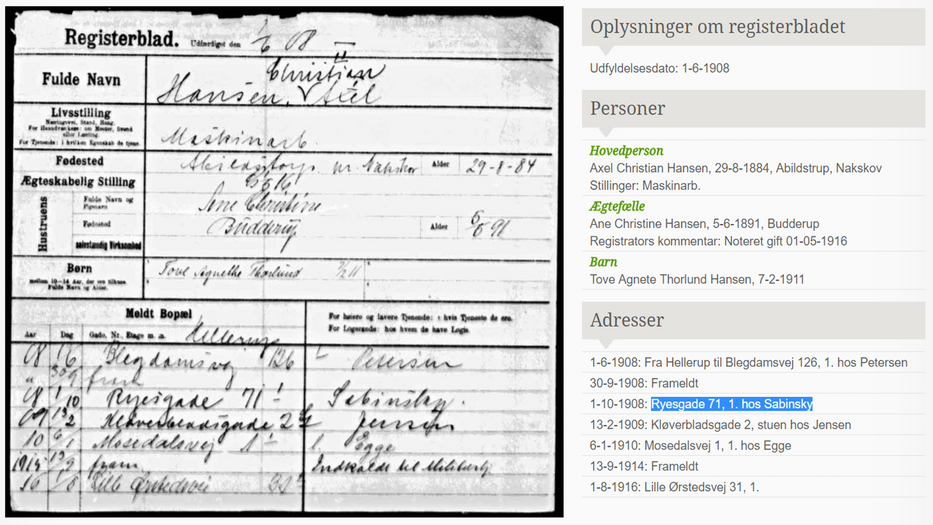 Registerblad. Udfærdiget den 1/6 08
Fulde Navn
Christian
Hansen, Axel
Livsstilling
Næringsvej, Stand, Rang.
For Haandværkere: om Mester, Svend
eller Lærling.
For Tjenende: i hvilken Egenskab de tjene.
Maskinarb.
Fødested
Abildstorp nr. Nakskov
Alder
29-8-84
Ægteskabelig Stilling
Hustruens
Fulde Navn og
Pigenavn
Ane Christine
Fødested
Budderup
Alder
5/6 91
selvstændig Virksomhed
Børn
mellem 10-14 Aar, der ere tilhuse.
Fulde Navn og Alder.
Tove Agnethe Thorlund 7/2 11
Meldt Bopæl
Hellerup
For høiere og lavere Tjenende: i hvis Tjeneste de ere.
For Logerende: hos hvem de have Logis.
Aar Dag Gade, Nr., Etage m. m.
08 1/6 Blegdamsvej 126 1 Petersen
" 30/9 fram
08 1/10 Ryesgade 71 1 Sabinsky.
09 13/2 Kløverbladsgade 2 St Jensen
10 6/1 Mosedalsvej 1 1. Egge
1914 13/9 fram. Indkaldt til Militærtj
16 1/8 Lille Ørstedsvej 31 1
Oplysninger om registerbladet
Udfyldelsesdato: 1-6-1908
Personer
Hovedperson
Axel Christian Hansen, 29-8-1884, Abildstrup, Nakskov
Stillinger: Maskinarb.
Ægtefælle
Ane Christine Hansen, 5-6-1891, Budderup
Registrators kommentar: Noteret gift 01-05-1916
Barn
Tove Agnete Thorlund Hansen, 7-2-1911
Adresser
1-6-1908: Fra Hellerup til Blegdamsvej 126, 1. hos Petersen
30-9-1908: Frameldt
1-10-1908: Ryesgade 71, 1. hos Sabinsky
13-2-1909: Kløverbladsgade 2, stuen hos Jensen
6-1-1910: Mosedalsvej 1, 1. hos Egge
13-9-1914: Frameldt
1-8-1916: Lille Ørstedsvej 31, 1.